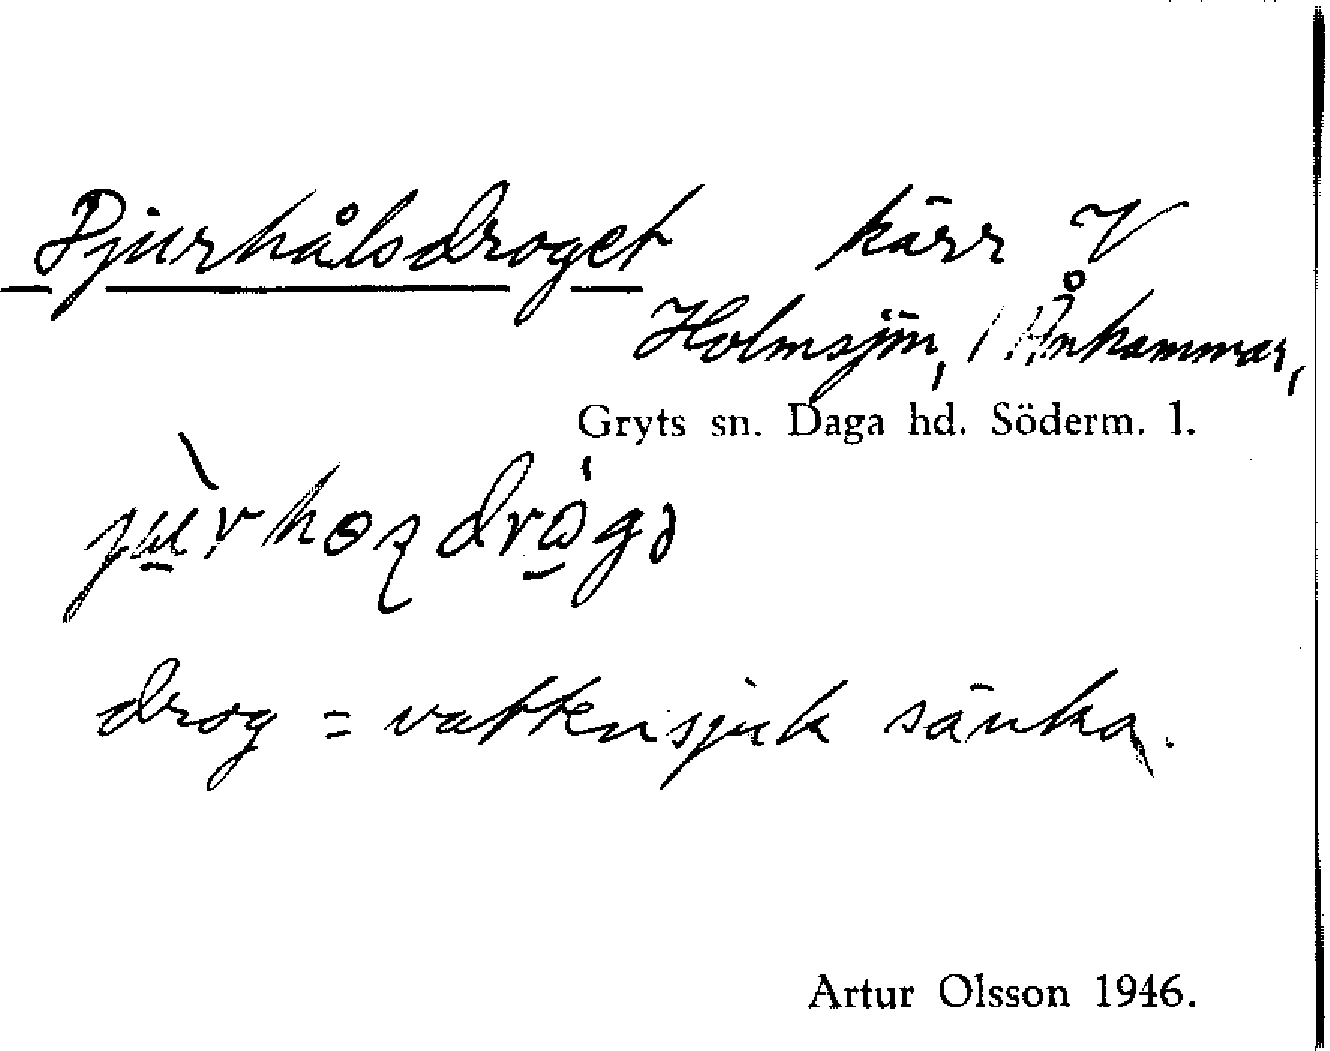 Djurhålsdroget kärr V
Holmsjön, / Ånhammar,
Gryts sn. Daga hd. Söderm. l.
drog = vattensjuk sänka.
Artur Olsson 1946.